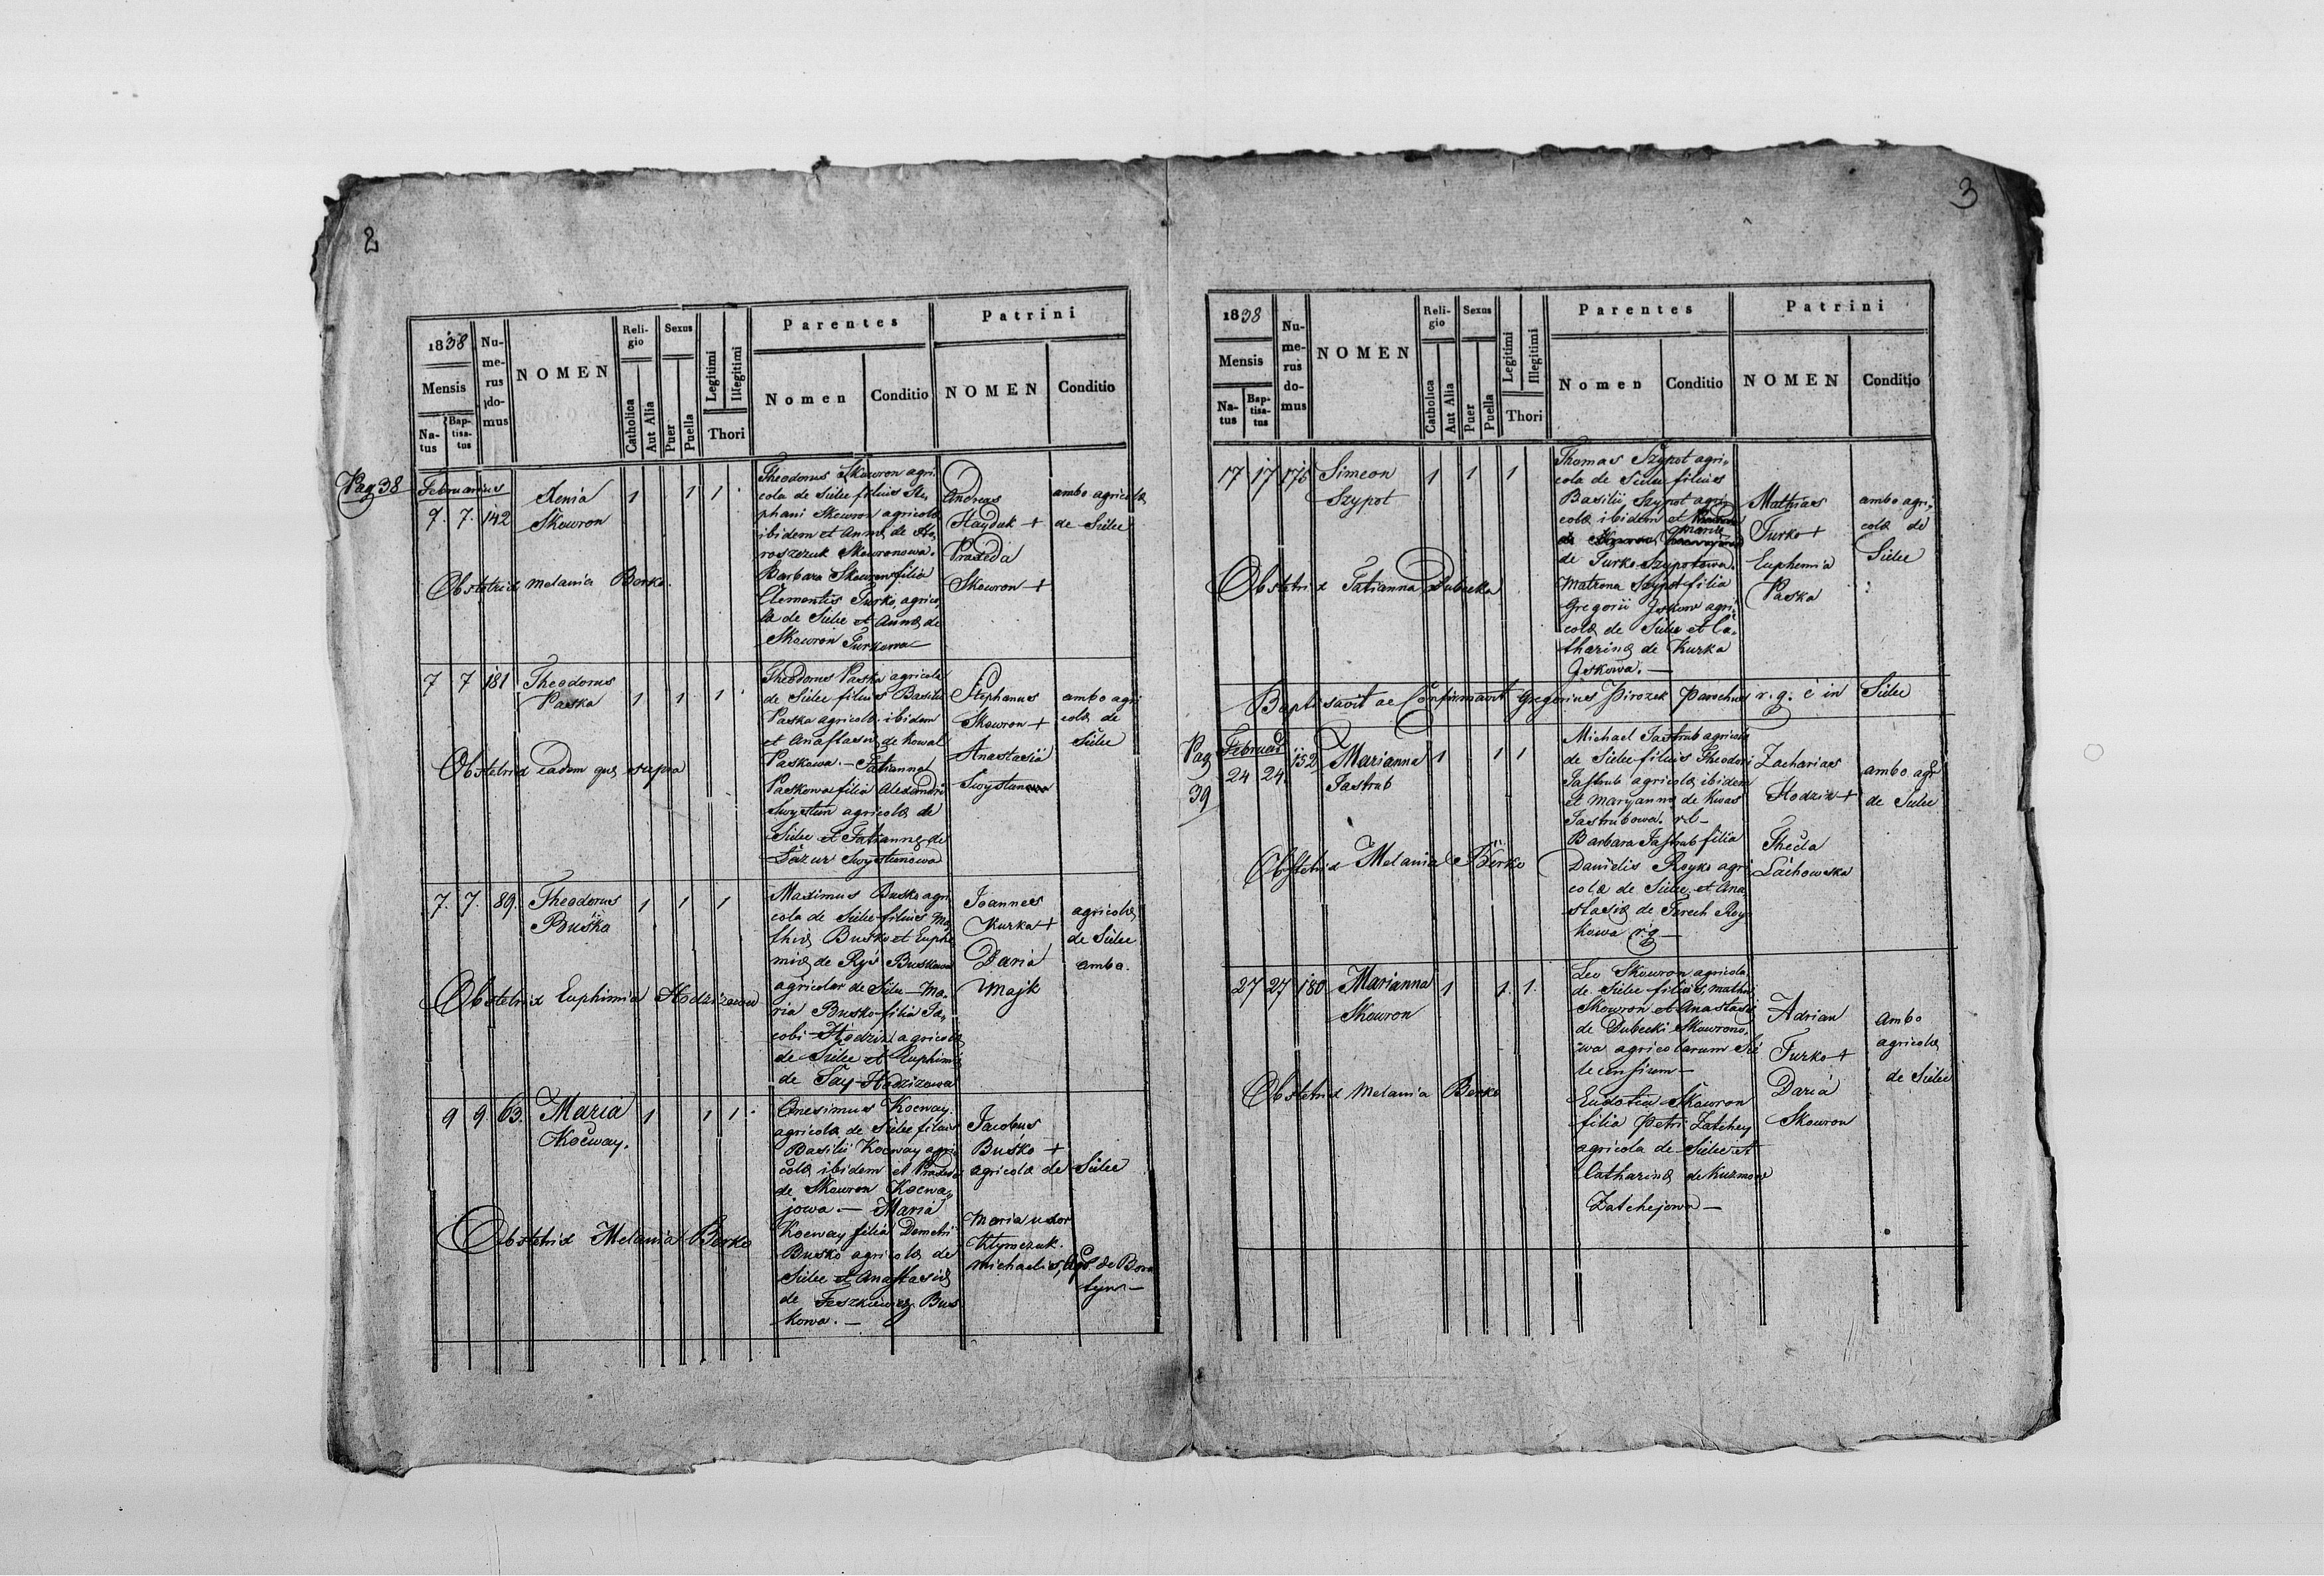 2
1838
Mensis
Na-
tus
Bap-
tisa-
tus
Nu-
me-
rus
do-
mus
NOMEN
Reli-
gio
Catholica
Aut Alia
Sexus
Puer
Puella
Legitimi
Illegitimi
Thori
Parentes
Nomen
Conditio
Patrini
NOMEN
Conditio
Pag 38
Februarius
7. 7. 142
Xenia
Skowron
1 1 1
Theodorus Skowron agri-
cola de Sielec filius Ste-
phani Skowron agricolæ
ibidem et Annæ de Ho-
roszczuk Skowronowa.
Barbara Skowron filia
Clementis Turko, agrico-
læ de Sielec et Annæ de
Skowron Turkowa
Andreas
Hayduk +
Praxeda
Skowron +
ambo agricolæ
de Sielec
Obstetrix Melania Borko.
7 7 181
Theodorus
Paska
1 1 1
Theodorus Paska agricola
de Sielec filius Basilii
Paska agricolæ ibidem
et Anastasiæ de Kowal
Paskowa. — Tatianna
Paskowa filia Alexandri
Swystun agricolæ de
Sielec et Tatiannæ de
Łazur Swystunowa
Stephanus
Skowron +
Anastasia
Swystun
ambo agri
colæ de
Sielec
Obstetrix eadem quæ supra
7. 7. 89.
Theodorus
Busko
1 1 1
Maximus Busko agri
cola de Sielec filius Ma
theiæ Busko et Euphe
miæ de Ryś Buskowa
agricolar de Sielec — Ma-
ria Busko filia Ja-
cobi Hodziż agricolæ
de Sielec et Euphimiæ
de Say Hodzizowa
Joannes
Kurka +
Daria
Majk
agricolæ
de Sielec
ambo.
Obstetrix Euphimia Hodzizowa
9 9. 63.
Maria
Kocway.
1 1 1
Onesimus Kocway
agricola de Sielec filius
Basilii Kocway agri
colæ ibidem et Praxedæ
de Skowron Kocwa-
jowa. — Maria
Kocway filia Demetri
Busko agricolæ de
Sielec et Anastasiæ
de Feszkiewicz Bus
kowa. —
Jacobus
Busko +
agricola de Sielec
Maria uxor
Klymczuk
Michaelis, agr. de Bora
tyn —
Obstetrix Melania Borko
3
1838
Mensis
Na-
tus
Bap-
tisa-
tus
Nu-
me-
rus
do-
mus
NOMEN
Reli-
gio
Catholica
Aut Alia
Sexus
Puer
Puella
Legitimi
Illegitimi
Thori
Parentes
Nomen
Conditio
Patrini
NOMEN
Conditio
17 17 176
Simeon
Szypot
1 1 1
Thomas Szypot agri-
cola de Sielec filius
Basilii Szypot agri
colæ ibidem et
Mariæ
de Turko Szypotowa.
Matrona Szypot filia
Gregorii Jskow agri-
colæ de Sielec et Ca-
tharinæ de Kurka
Jskowa. —
Mathias
Turko +
Euphemia
Paska
ambo agri-
colæ de
Sielec
Obstetrix Tatianna Dubecka
Baptisavit ac Confirmavit Gregorius Pirozek Parochus r. g. c in Sielec
Pag
39
Februar
24 24 152
Marianna
Jastrub
1 1 1
Michael Jastrub agricola
de Sielec filius Theodori
Jastrub agricolæ ibidem
et Maryannæ de Kwas
Jastrubowa. r.l —
Barbara Jastrub filia
Danielis Royko agri
colæ de Sielec et Ana
stasiæ de Furech Roy
kowa r.g —
Zacharias
Hodziż +
Thecla
Lachowska
ambo agr
de Sielec
Obstetrix Melania Borko
27 27 180
Marianna
Skowron
1 1. 1.
Leo Skowron agricola
de Sielec filius Mathei
Skowron et Anastasiæ
de Dubecki Skowrono-
wa agricolarum Sie
lecensium —
Eudocia Skowron
filia Petri Zatchey
agricola de Sielec et
Catharinæ de Kuzmow
Zatchejowa —
Adrian
Turko +
Daria
Skowron
Ambo
agricolæ
de Sielec
Obstetrix Melania Borko